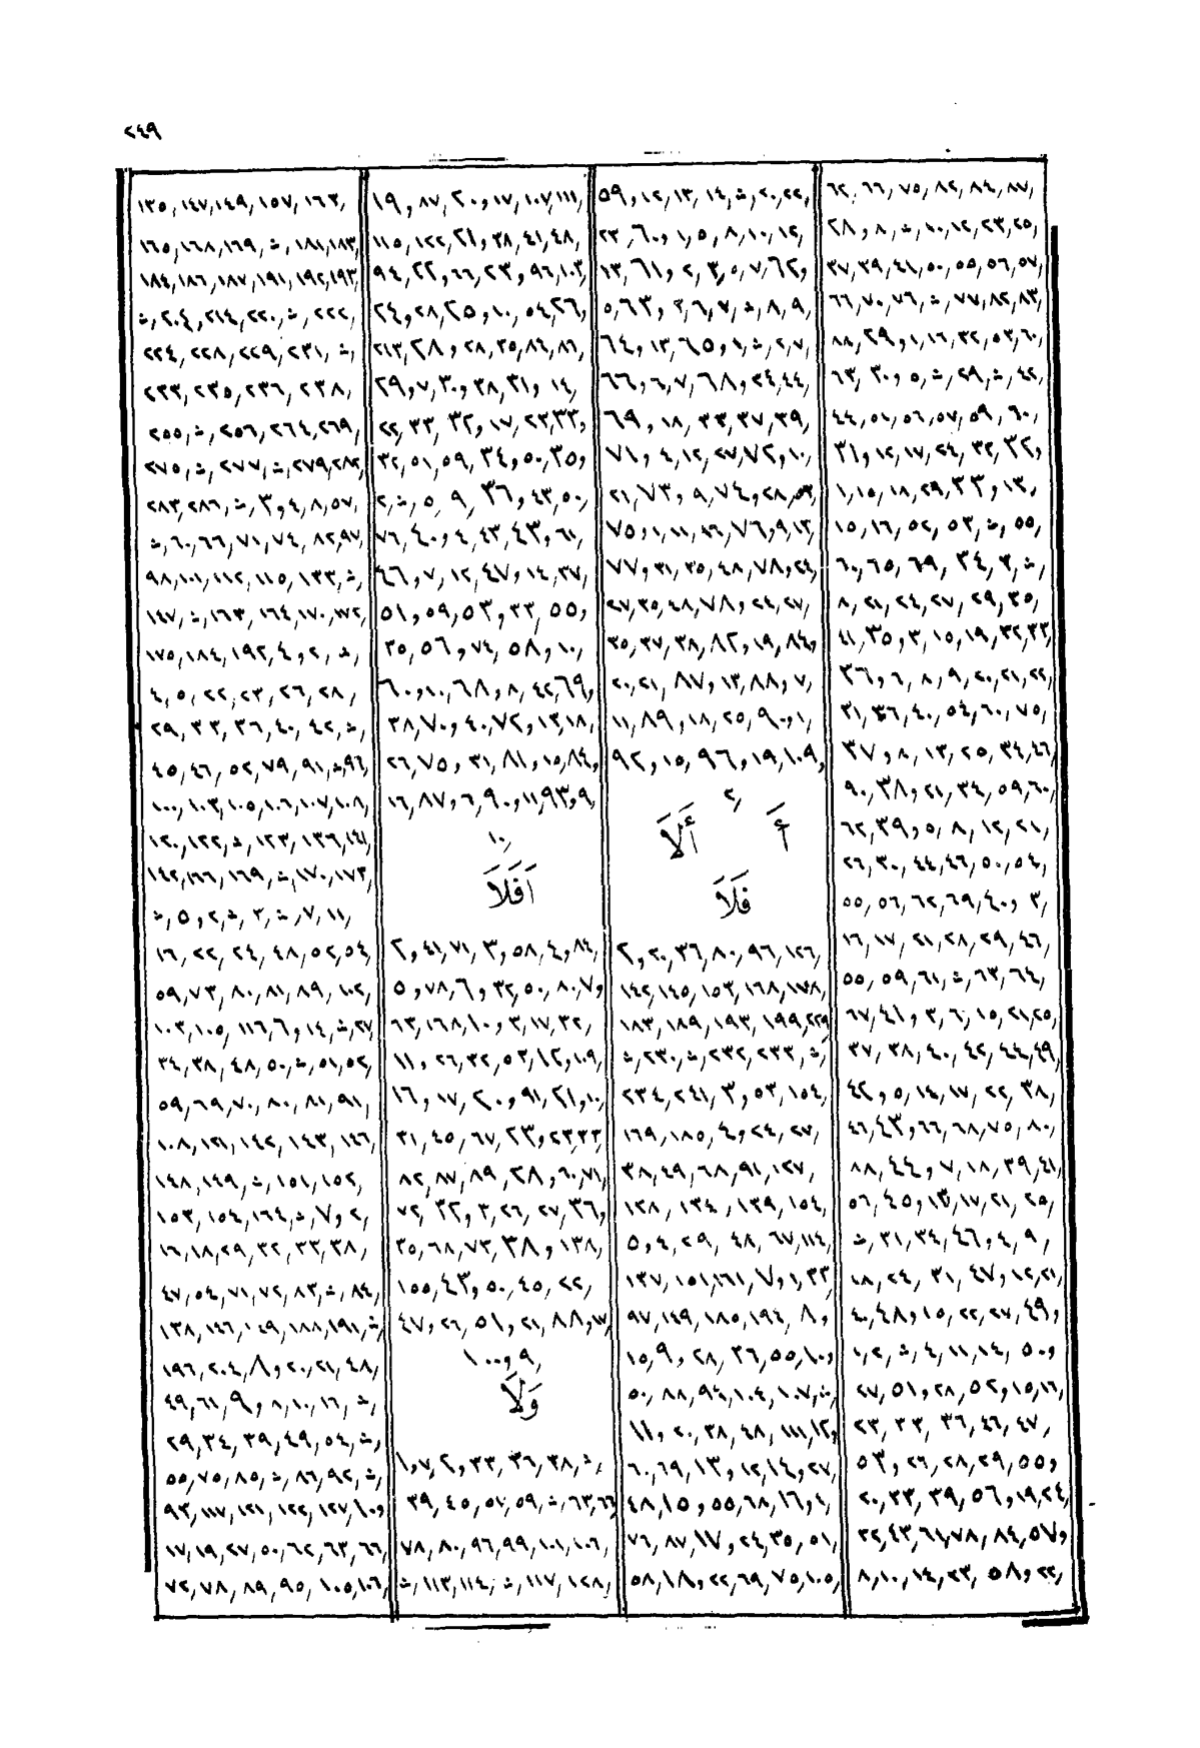 ٢٤٩
٦٢, ٦٦, ٧٥, ٨٢, ٨٤, ٨٧,
٢٨, ٨, ث, ١٠, ١٢, ٢٣, ٢٥,
٣٧, ٣٩, ٤١, ٥٠, ٥٥, ٥٦, ٥٧,
٦٦, ٧٠, ٧٦, ث, ٧٧, ٨٢, ٨٣,
٨٨, ٢٩, ١, ١٦, ٣٢, ٥٣, ٦٠,
٦٣, ٣٠, ٥, ث, ٢٩, ث, ٤٢,
٤٤, ٥١, ٥٦, ٥٧, ٥٩, ٦٠,
٣١, ١٢, ١٧, ٢٤, ٣٢, ٣٢,
١, ١٥, ١٨, ٢٩, ٣٣, ١٣,
١٥, ١٦, ٥٢, ٥٣, ث, ٥٥,
٦٠, ٦٥, ٦٩, ٣٤, ٣, ث,
٨, ٢١, ٢٤, ٢٧, ٢٩, ٣٥,
٤١, ٣٥, ٣, ١٥, ١٩, ٣٢, ٣٣,
٣٦, ٦, ٨, ٩, ٢٠, ٢١, ٢٢,
٣١, ٣٦, ٤٠, ٥٤, ٦٠, ٧٥,
٣٧, ٨, ١٣, ٢٥, ٣٤, ٤٦,
٩٠, ٣٨, ٢١, ٣٤, ٥٩, ٦٠,
٦٢, ٣٩, ٥, ٨, ١٢, ٢١,
٢٦, ٣٠, ٤٤, ٤٦, ٥٠, ٥٤,
٥٥, ٥٦, ٦٢, ٦٩, ٤٠, ٣,
١٦, ١٧, ٢١, ٢٨, ٢٩, ٤٦,
٥٥, ٥٩, ٦١, ث, ٦٣, ٦٤,
٦٧, ٤١, ٣, ٦, ١٥, ٢١, ٢٥,
٣٧, ٣٨, ٤٠, ٤٢, ٤٤, ٤٩,
٤٢, ٥, ١٤, ١٧, ٢٢, ٣٨,
٤٦, ٤٣, ٦٦, ٦٨, ٧٥, ٨٠,
٨٨, ٤٤, ٧, ١٨, ٣٩, ٤١,
٥٦, ٤٥, ١٣, ١٧, ٢١, ٢٥,
ث, ٣١, ٣٤, ٤٦, ٤, ٩,
١٨, ٢٤, ٣١, ٤٧, ١٢, ٢١,
٤٠, ٤٨, ١٥, ٢٢, ٢٧, ٤٩,
١, ٢, ث, ٤, ١١, ١٤, ٥٠,
٢٧, ٥١, ٢٨, ٥٢, ١٥, ١٦,
٢٣, ٣٣, ٣٦, ٤٦, ٤٧,
٥٣, ٢٦, ٢٨, ٢٩, ٥٥,
٢٠, ٣٣, ٣٩, ٥٦, ١٩, ٢٤,
٣٢, ٤٣, ٦١, ٧٨, ٨٤, ٥٧,
٨, ١٠, ١٤, ٢٣, ٥٨, ٢٢,
٥٩, ١٢, ١٣, ١٤, ث, ٢٠, ٢٢,
٢٣, ٦٠, ١, ٥, ٨, ١٠, ١٢,
١٣, ٦١, ٢, ٣, ٥, ٧, ٦٢,
٥, ٦٣, ٢, ٦, ٧, ث, ٨, ٩,
٦٤, ١٣, ٦٥, ١, ث, ٢, ٧,
٦٦, ٦, ٧, ٦٨, ٢٤, ٤٤,
٦٩, ١٨, ٣٣, ٣٧, ٣٩,
٧١, ٤, ١٢, ٢٧, ٧٢, ١٠,
٢١, ٧٣, ٩, ٧٤, ٢٨, ٥٣,
٧٥, ١, ١١, ٢٦, ٧٦, ٩, ١٣,
٧٧, ٣١, ٣٥, ٤٨, ٧٨, ٢٤,
٢٧, ٣٥, ٤٨, ٧٨, ٢٤, ٢٧,
٣٥, ٣٧, ٣٨, ٨٢, ١٩, ٨٤,
٢٠, ٢١, ٨٧, ١٣, ٨٨, ٧,
١١, ٨٩, ١٨, ٢٥, ٩٠, ١,
٩٢, ١٥, ٩٦, ١٩, ١٠٩,
٢,
أَ أَلَا
فَلَا
٢, ٢٠, ٣٦, ٨٠, ٩٦, ١٢٦,
١٤٢, ١٤٥, ١٥٣, ١٦٨, ١٧٨,
١٨٣, ١٨٩, ١٩٣, ١٩٩, ٢٢٩,
ث, ٢٣٠, ث, ٢٣٢, ٢٣٣, ث,
٢٣٤, ٢٤١, ٣, ٥٣, ١٥٤,
١٦٩, ١٨٥, ٤, ٢٤, ٢٧,
٣٨, ٤٩, ٦٨, ٩١, ١٢٧,
١٢٨, ١٣٤, ١٣٩, ١٥٤,
٥, ٤, ٢٩, ٤٨, ٦٧, ١١٤,
١٣٧, ١٥١, ١٦١, ٧, ١, ٣٣,
٩٧, ١٤٩, ١٨٥, ١٩٤, ٨,
١٥, ٩, ٢٨, ٣٦, ٥٥, ١٠,
٥٠, ٨٨, ٩٤, ١٠٤, ١٠٧, ث,
١١, ٢٠, ٣٨, ٤٨, ١١١, ١٢,
٦٠, ٦٩, ١٣, ١٢, ١٤, ٢٧,
٤٨, ١٥, ٥٥, ٦٨, ١٦, ٤,
٧٦, ٨٧, ١٧, ٢٤, ٣٥, ٥١,
٥٨, ١٨, ٢٢, ٦٩, ٧٥, ١٠٥,
١٩, ٨٧, ٢٠, ١٧, ١٠٧, ١١١,
١١٥, ١٢٢, ٢١, ٣٨, ٤١, ٤٨,
٩٤, ٢٢, ٦٦, ٢٣, ٩٦, ١٠٣,
٢٤, ٢٨, ٢٥, ١٠, ٥٤, ٢٦,
٢١٣, ٢٨, ٢٨, ٣٥, ٨٤, ٨٦,
٢٩, ٧, ٣٠, ٣٨, ٣١, ١٤,
٢٢, ٣٣, ٣٢, ١٧, ٢٣, ٣٣,
٣٢, ٥١, ٥٩, ٣٤, ٥٠, ٣٥,
٢, ث, ٥, ٩, ٣٦, ٤٣, ٥٠,
٧٦, ٤٠, ٤, ٤٣, ٤٣, ٦١,
٤٦, ٧, ١٢, ٤٧, ١٤, ٣٧,
٥١, ٥٩, ٥٣, ٣٣, ٥٥,
٣٥, ٥٦, ٧٤, ٥٨, ١٠,
٦٠, ١٠, ٦٨, ٨, ٤٢, ٦٩,
٣٨, ٧٠, ٤٠, ٧٢, ١٣, ١٨,
٢٦, ٧٥, ٣١, ٨١, ١٥, ٨٤,
١٦, ٨٧, ٦, ٩٠, ١١, ٩٣, ٩,
١٠,
اَفَلَا
٢, ٤١, ٧١, ٣, ٥٨, ٤, ٨٤,
٥, ٧٨, ٦, ٣٢, ٥٠, ٨٠, ٧,
٦٣, ١٦٨, ١٠, ٣, ١٧, ٣٢,
١١, ٢٦, ٣٢, ٥٣, ١٢, ١٠٩,
١٦, ١٧, ٢٠, ٩١, ٢١, ١٠,
٣١, ٤٥, ٦٧, ٢٣, ٢٣, ٣٢,
٨٢, ٨٧, ٨٩, ٢٨, ٦٠, ٧١,
٧٢, ٣٢, ٣, ٢٦, ٢٧, ٣٦,
٣٥, ٦٨, ٧٣, ٣٨, ١٣٨,
١٥٥, ٤٣, ٥٠, ٤٥, ٢٢,
٤٧, ٢٦, ٥١, ٢١, ٨٨, ١٧,
٩, ١٠٠
وَلَا
١, ٧, ٢, ٣٣, ٣٦, ٣٨, ث,
٣٩, ٤٥, ٥٧, ٥٩, ث, ٦٣, ٦٦
٧٨, ٨٠, ٩٦, ٩٩, ١٠١, ١٠٦,
ث, ١١٣, ١١٤, ث, ١١٧, ١٢٨,
١٣٥, ١٤٧, ١٤٩, ١٥٧, ١٦٣,
١٦٥, ١٦٨, ١٦٩, ث, ١٨١, ١٨٣,
١٨٤, ١٨٦, ١٨٧, ١٩١, ١٩٢, ١٩٣,
ث, ٢٠٤, ٢١٤, ٢٢٠, ث, ٢٢٢,
٢٢٤, ٢٢٨, ٢٢٩, ٢٣١, ث,
٢٣٣, ٢٣٥, ٢٣٦, ٢٣٨,
٢٥٥, ث, ٢٥٦, ٢٦٤, ٢٦٩,
٢٧٥, ث, ٢٧٧, ث, ٢٧٩, ٢٨٢
٢٨٣, ٢٨٦, ث, ٣, ٤, ٨, ٥٧,
ث, ٦٠, ٦٦, ٧١, ٧٤, ٨٢, ٩٧
٩٨, ١٠١, ١١٢, ١١٥, ١٣٣, ث,
١٤٧, ث, ١٦٣, ١٦٤, ١٧٠, ١٧٢,
١٧٥, ١٨٤, ١٩٢, ٤, ٢, ث,
٤, ٥, ٢٢, ٢٣, ٢٦, ٢٨,
٢٩, ٣٣, ٣٦, ٤٠, ٤٢, ث,
٤٥, ٤٦, ٥٢, ٧٩, ٩١, ث, ٩٦,
١٠٠, ١٠٣, ١٠٥, ١٠٦, ١٠٧, ١٠٨,
١٢٠, ١٢٢, ث, ١٢٣, ١٣٦, ١٤١,
١٤٢, ١٦٦, ١٦٩, ث, ١٧٠, ١٧٣,
ث, ٥, ٢, ث, ٣, ث, ٧, ١١,
١٦, ٢٢, ٢٤, ٤٨, ٥٢, ٥٤,
٥٩, ٧٣, ٨٠, ٨١, ٨٩, ١٠٢,
١٠٣, ١٠٥, ١١٦, ٦, ١٤, ث, ٢٧
٣٤, ٣٨, ٤٨, ٥٠, ث, ٥١, ٥٢,
٥٩, ٦٩, ٧٠, ٨٠, ٨١, ٩١,
١٠٨, ١٢١, ١٤٢, ١٤٣, ١٤٦,
١٤٨, ١٤٩, ث, ١٥١, ١٥٢,
١٥٣, ١٥٤, ١٦٤, ث, ٧, ٢,
١٦, ١٨, ٢٩, ٣٢, ٣٣, ٣٨,
٤٧, ٥٤, ٧١, ٧٢, ٨٣, ث, ٨٤,
١٣٨, ١٤٦, ١٨٨, ١٩١, ث,
١٩٦, ٢٠٤, ٨, ٢٠, ٢١, ٤٨,
٤٩, ٦١, ٩, ٨, ١٠, ١٦, ث,
٢٩, ٣٤, ٣٩, ٤٩, ٥٤, ث,
٥٥, ٧٥, ٨٥, ث, ٨٦, ٩٢, ث,
٩٣, ١١٧, ١٢١, ١٢٢, ١٢٧, ١٠,
١٧, ١٩, ٢٧, ٥٠, ٦٢, ٦٣, ٦٦,
٧٢, ٧٨, ٨٩, ٩٥, ١٠٥, ١٠٦,